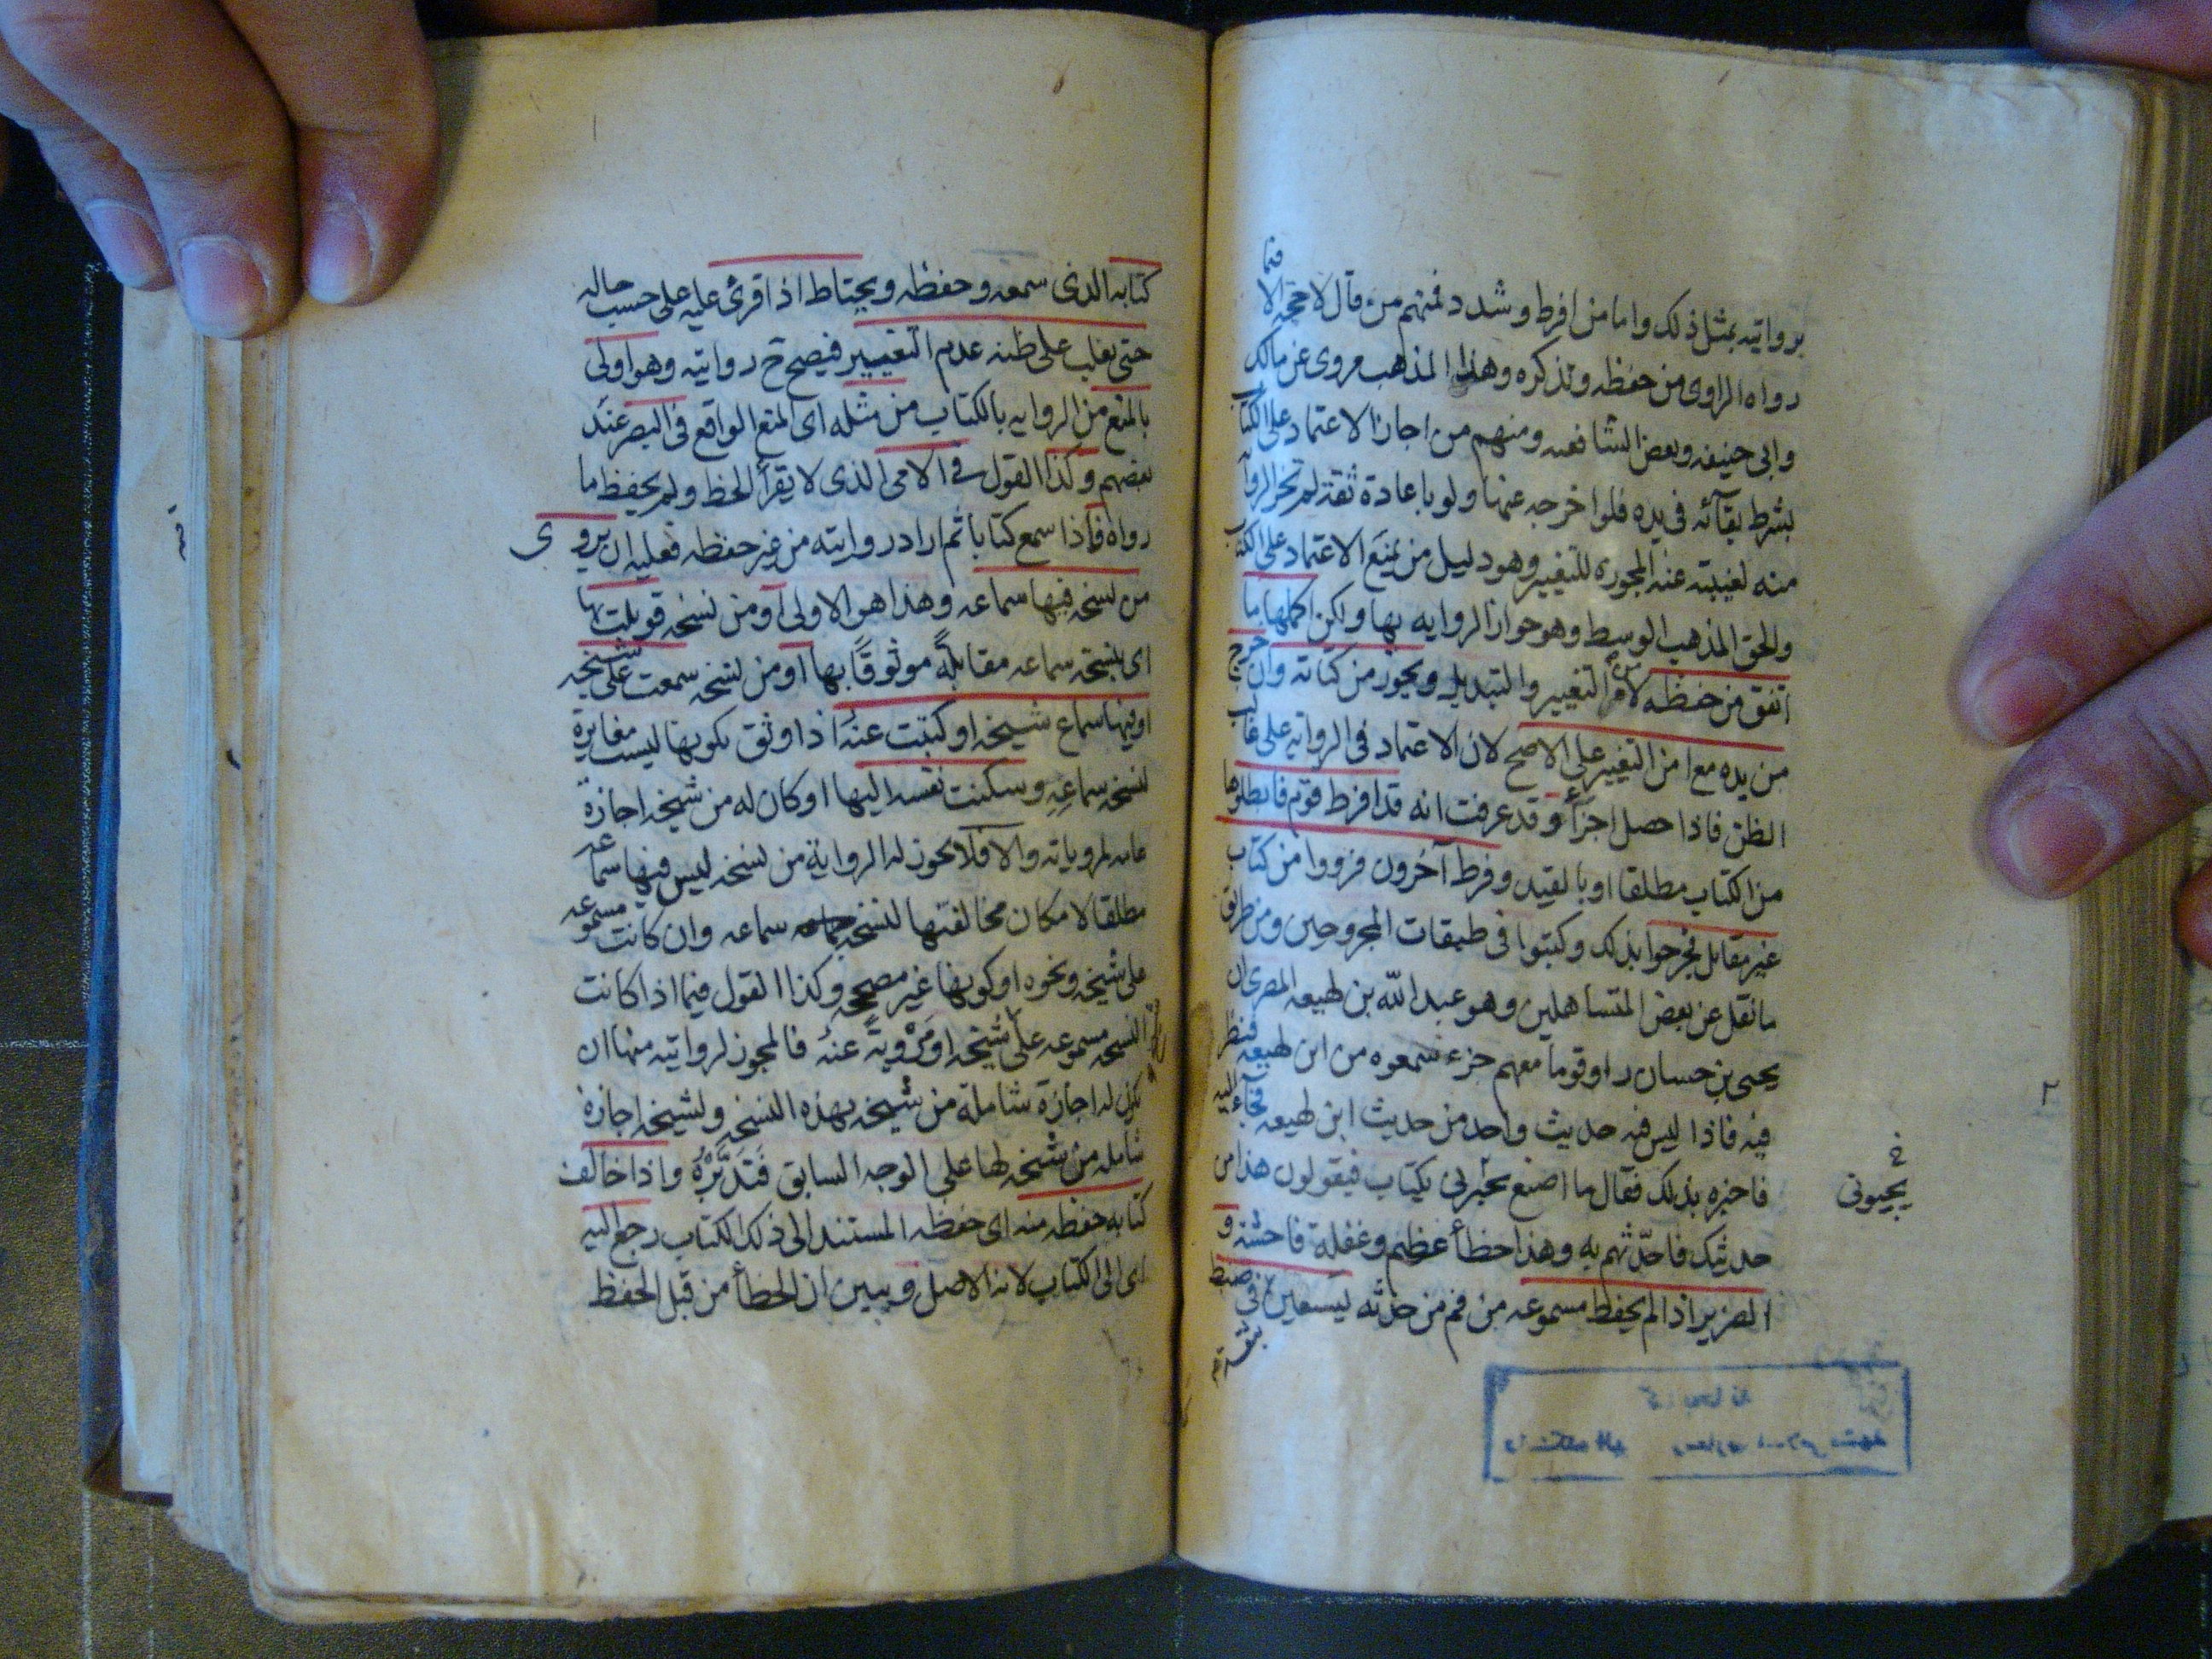 بروايته بمثل ذلك واما من افرط وشدد فمنهم من قال لا حجة الا فيما
رواه الراوى من حفظه وتذكره وهذا المذهب مروى عن مالك
وابى حنيفه وبعض الشافعيه ومنهم من اجاز الاعتماد على الكتاب
بشرط بقائه فى يده فلو اخرجه عنها ولو باعادة ثقة لم تجز الرواية
منه لغيبته عنه المجوزه للتغيير وهو دليل من يمنع الاعتماد على الكتاب
والحق المذهب الوسط وهو جواز الروايه بها ولكن اكملها ما
اتفق من حفظه لا من التغيير والتبديل ويجوز من كتابه وان خرج
من يده مع امن التغيير على الاصح لان الاعتماد فى الرواية على غالب
الظن فاذا حصل اجزأ وقد عرفت انه قد افرط قوم فابطلوها
من الكتاب مطلقا او بالقيد وفرط آخرون فرووا من كتاب
غير مقابل فجرحوا بذلك وكتبوا فى طبقات المجروحين ومن طريق
ما نقل عن بعض المتساهلين وهو عبد الله بن لهيعه المصرى ان
يحيى بن حسان راى قوما معهم جزء سمعوه من ابن لهيعه فنظر
فيه فاذا ليس فيه حديث واحد من حديث ابن لهيعه فجاء اليه
فاخبره بذلك فقال ما اصنع يجئونى بكتاب فيقولون هذا من
يجيئونى خ
حديثك فاحدثهم به وهذا خطأ عظيم وغفلة فاحشة و
الضرير اذا لم يحفظ مسموعه من فم من حدثه يستعين فى ضبط
بثقة
كتابه الذى سمعه وحفظه ويحتاط اذا قرئ عليه على حسب حاله
حتى يغلب على ظنه عدم التغيير فيصح ح روايته وهو اولى
بالمنع من الروايه بالكتاب من مثله اى المنع الواقع فى البصير عند
بعضهم وكذا القول فى الامى الذى لا يقرأ الخط ولم يحفظ ما
رواه فاذا سمع كتابا ثم اراد روايته من غير حفظه فعليه ان يروى
من نسخه فيها سماعه وهذا هو الاولى او من نسخه قوبلت بها
اى بنسخة سماعه مقابلةً موثوقًا بها او من نسخه سمعت على شيخه
او فيها سماع شيخه او كتبت عنه اذا وثق بكونها ليست مغايرة
لنسخه سماعه وسكنت نفسه اليها او كان له من شيخه اجازة
عامه لمروياته والا فلا يجوز له الرواية من نسخه ليس فيها سماعه
مطلقا لامكان مخالفتها لنسخه سماعه وان كانت مسموعه
على شيخه ونحوه او كونها غير مصححه وكذا القول فيما اذا كانت
النسخه مسموعه على شيخ شيخه او مرويةً عنه فالمجوز لروايته منها ان
يكون له اجازة شاملة من شيخه بهذه النسخه ولشيخه اجازة
شامله من شيخه لها على الوجه السابق فتدبره واذا خالف
كتابه حفظه منه اى حفظه المستند الى ذلك الكتاب رجع اليه
اى الى الكتاب لانه الاصل وتبين ان الخطأ من قبل الحفظ